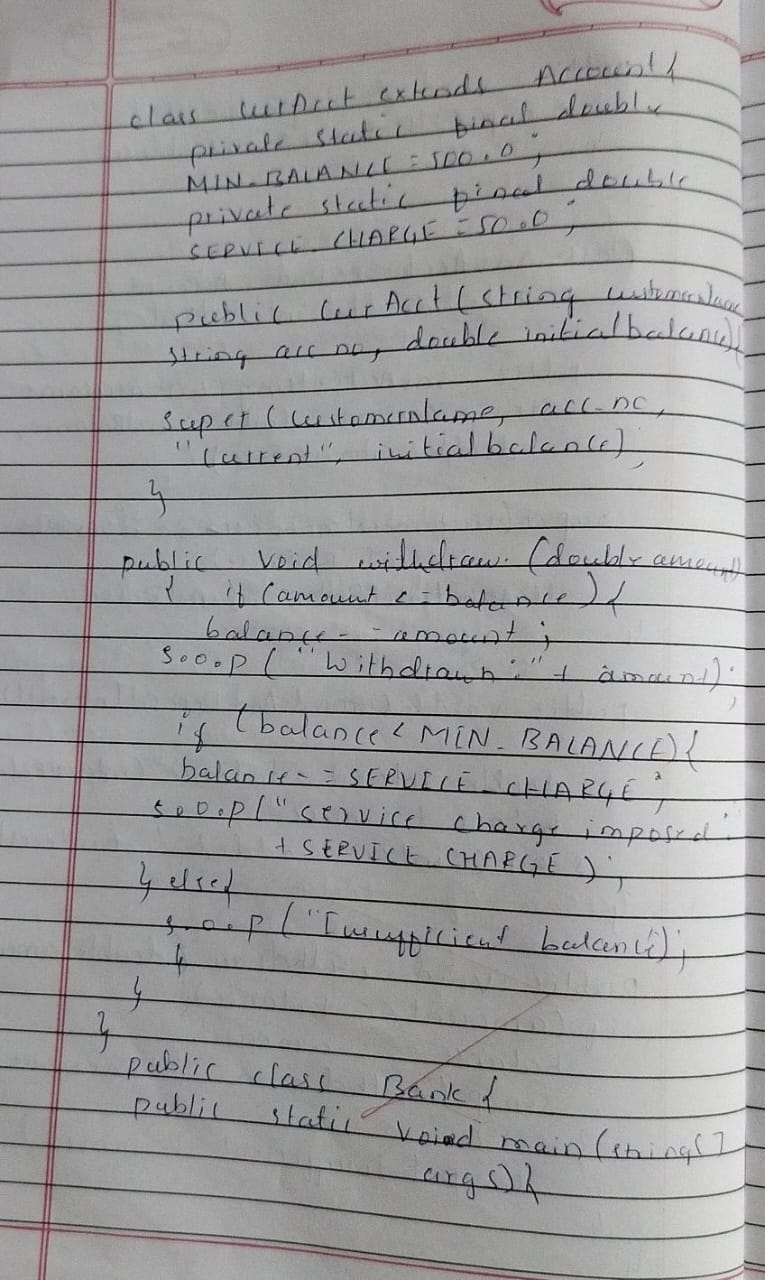 class CurAcct extends Account {
private static final double
MIN_BALANCE = 500.0;
private static final double
SERVICE_CHARGE = 50.0;
public CurAcct (String customerName
String acc no, double initialbalance){
super (CustomerName, acc_no,
"Current", initialbalance)
;
}
public void withdraw. (double amount)
{ if (amount <= balance) {
balance -= amount;
S.o.p ( "Withdrawn:" + amount);
if (balance < MIN_BALANCE) {
balance -= SERVICE_CHARGE;
S.o.o.p ("Service charge imposed:
+ SERVICE CHARGE );
} else{
s.o.p ("Insufficient balance);
}
}
}
public class Bank {
public static void main (string[]
args) {